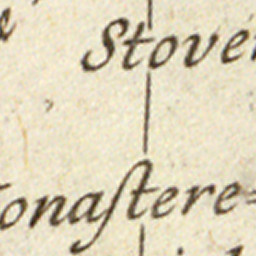 Stove
onaſtere=